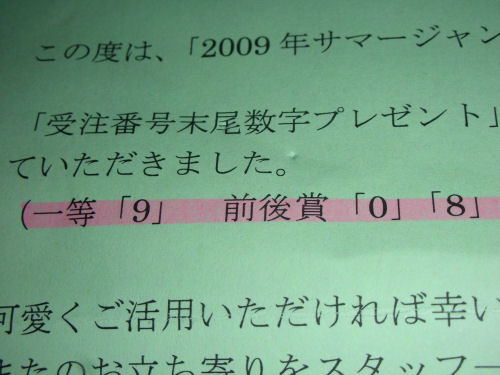 この度は、「2009年サマージャン
「受注番号末尾数字プレゼント」
ていただきました。
(一等「9」 前後賞「0」「8」
可愛くご活用いただければ幸い
またのお立ち寄りをスタッフ一